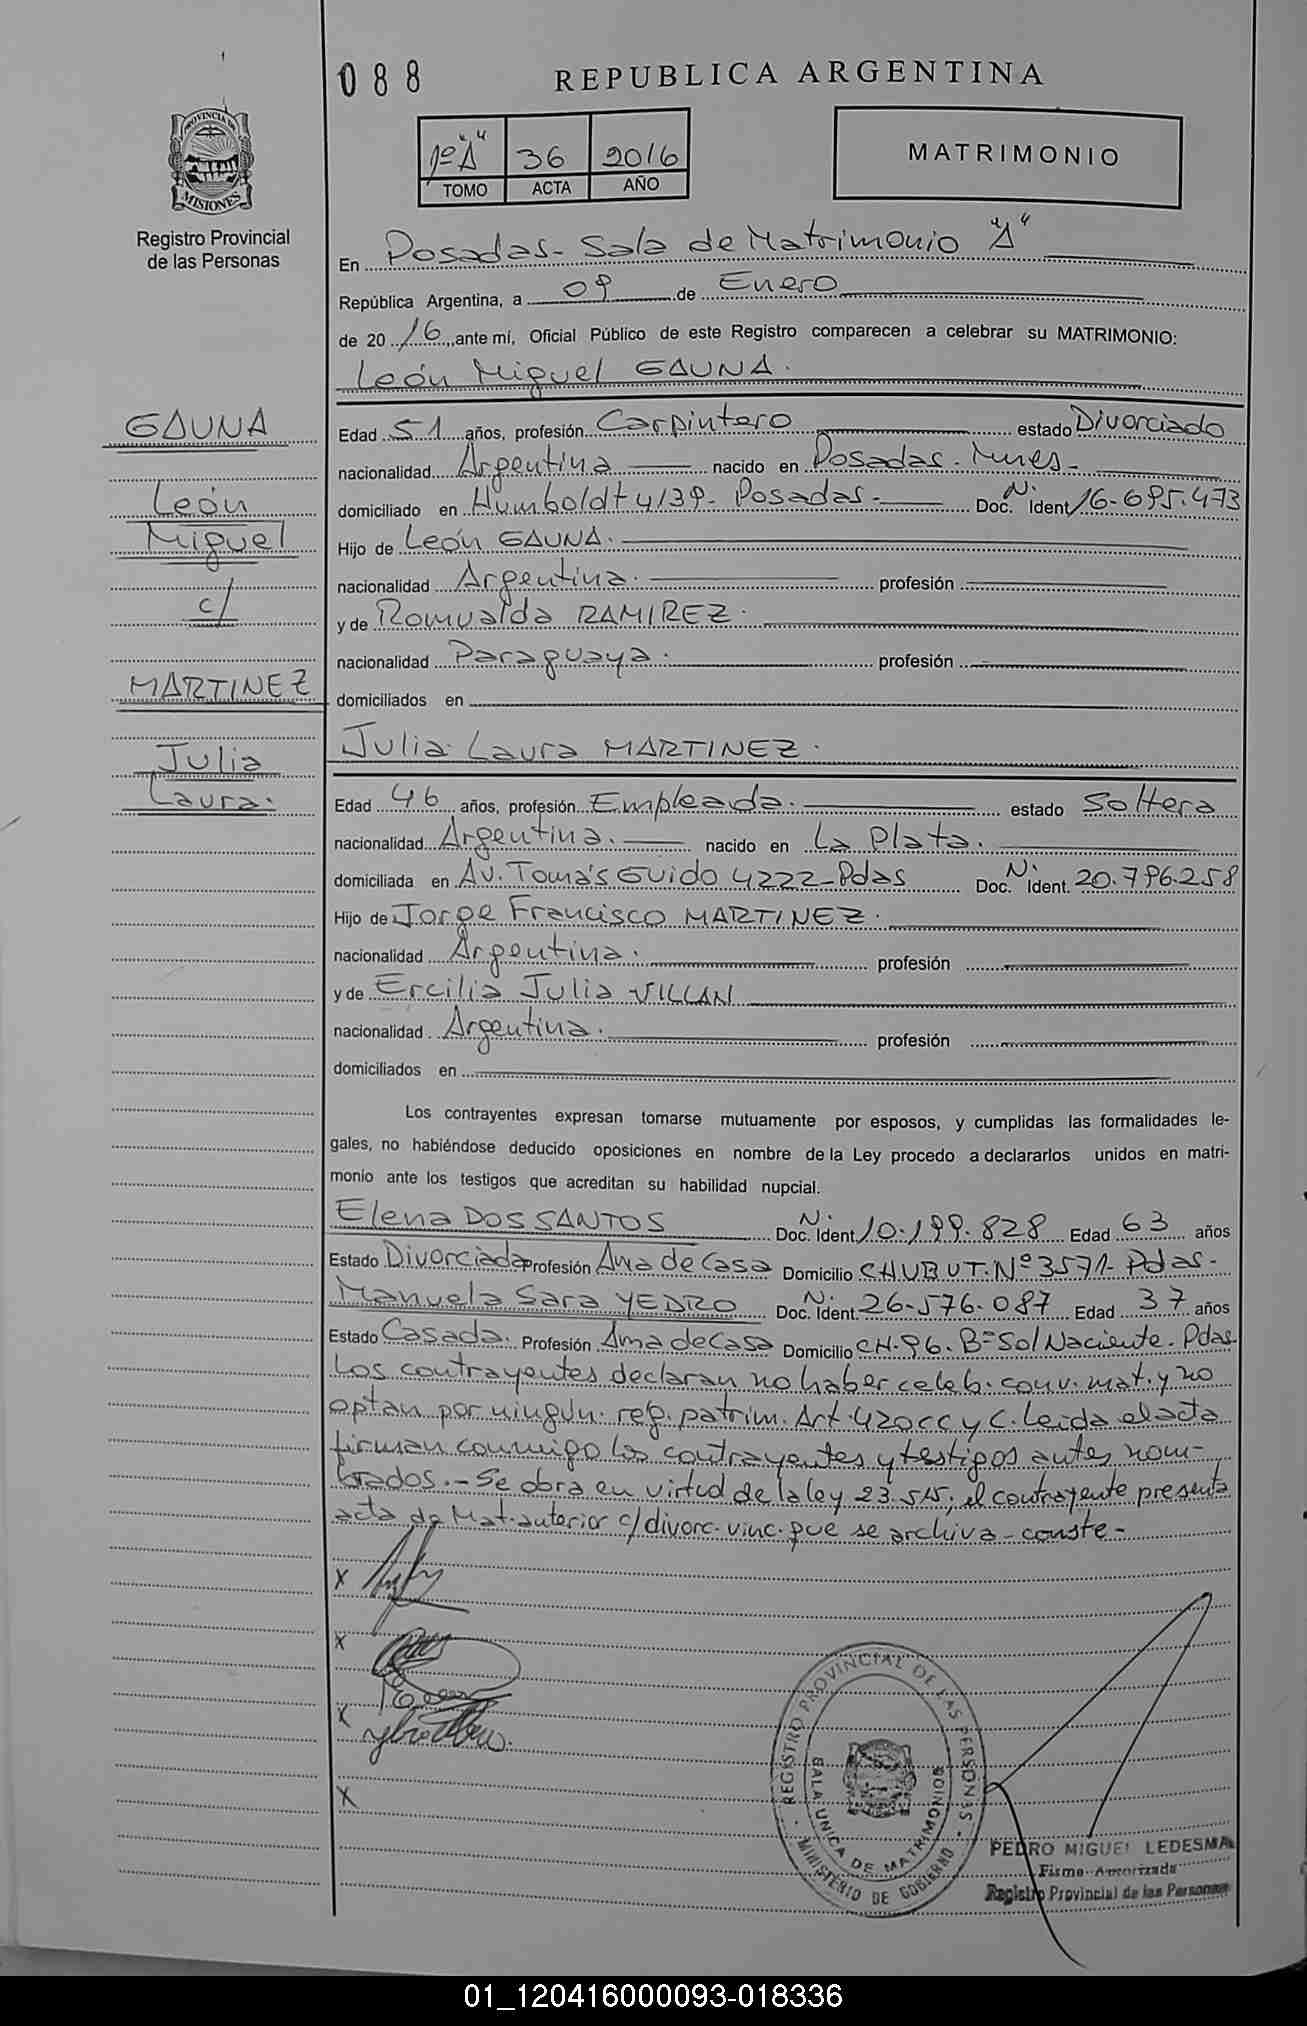 088
REPUBLICA ARGENTINA
PROVINCIA DE
MISIONES
Registro Provincial
de las Personas
1º "A" 36 2016
TOMO ACTA AÑO
MATRIMONIO
En Posadas - Sala de Matrimonio "A"
República Argentina, a 09 de Enero
de 20 16 ante mí, Oficial Público de este Registro comparecen a celebrar su MATRIMONIO:
León Miguel GAUNA.
GAUNA
León
Miguel
c/
MARTINEZ
Julia
Laura.
Edad 51 años, profesión Carpintero estado Divorciado
nacionalidad Argentina nacido en Posadas - Mnes -
domiciliado en Humboldt 4139 - Posadas - Doc. N. Ident 16-695.473
Hijo de León GAUNA.
nacionalidad Argentina. profesión
y de Romualda RAMIREZ.
nacionalidad Paraguaya. profesión
domiciliados en
Julia Laura MARTINEZ.
Edad 46 años, profesión Empleada. estado Soltera
nacionalidad Argentina. nacido en La Plata.
domiciliada en Av. Tomás Guido 4222 - Pdas Doc. N. Ident. 20.796.258
Hijo de Jorge Francisco MARTINEZ.
nacionalidad Argentina. profesión
y de Ercilia Julia VILLAN
nacionalidad Argentina. profesión
domiciliados en
Los contrayentes expresan tomarse mutuamente por esposos, y cumplidas las formalidades le-
gales, no habiéndose deducido oposiciones en nombre de la Ley procedo a declararlos unidos en matri-
monio ante los testigos que acreditan su habilidad nupcial.
Elena DOS SANTOS Doc. N. Ident 10.199.828 Edad 63 años
Estado Divorciada Profesión Ama de Casa Domicilio CHUBUT. Nº 3571 - Pdas -
Manuela Sara YEDRO Doc. N. Ident. 26-576.087 Edad 37 años
Estado Casada. Profesión Ama de Casa Domicilio CH. 96. Bº Sol Naciente. Pdas.
Los contrayentes declaran no haber celeb. conv. mat. y no
optan por ningún. reg. patrim. Art. 420 CC y C. Leida el acta
firman conmigo los contrayentes y testigos antes nom-
brados. - Se obra en virtud de la ley 23.515; el contrayente presenta
acta de Mat. anterior c/ divorc. vinc. que se archiva - conste -
X
X
X
X
REGISTRO PROVINCIAL DE LAS PERSONAS
SALA UNICA DE MATRIMONIOS
MINISTERIO DE GOBIERNO
PEDRO MIGUEL LEDESMA
Firma Autorizada
Registro Provincial de las Personas
01_120416000093-018336